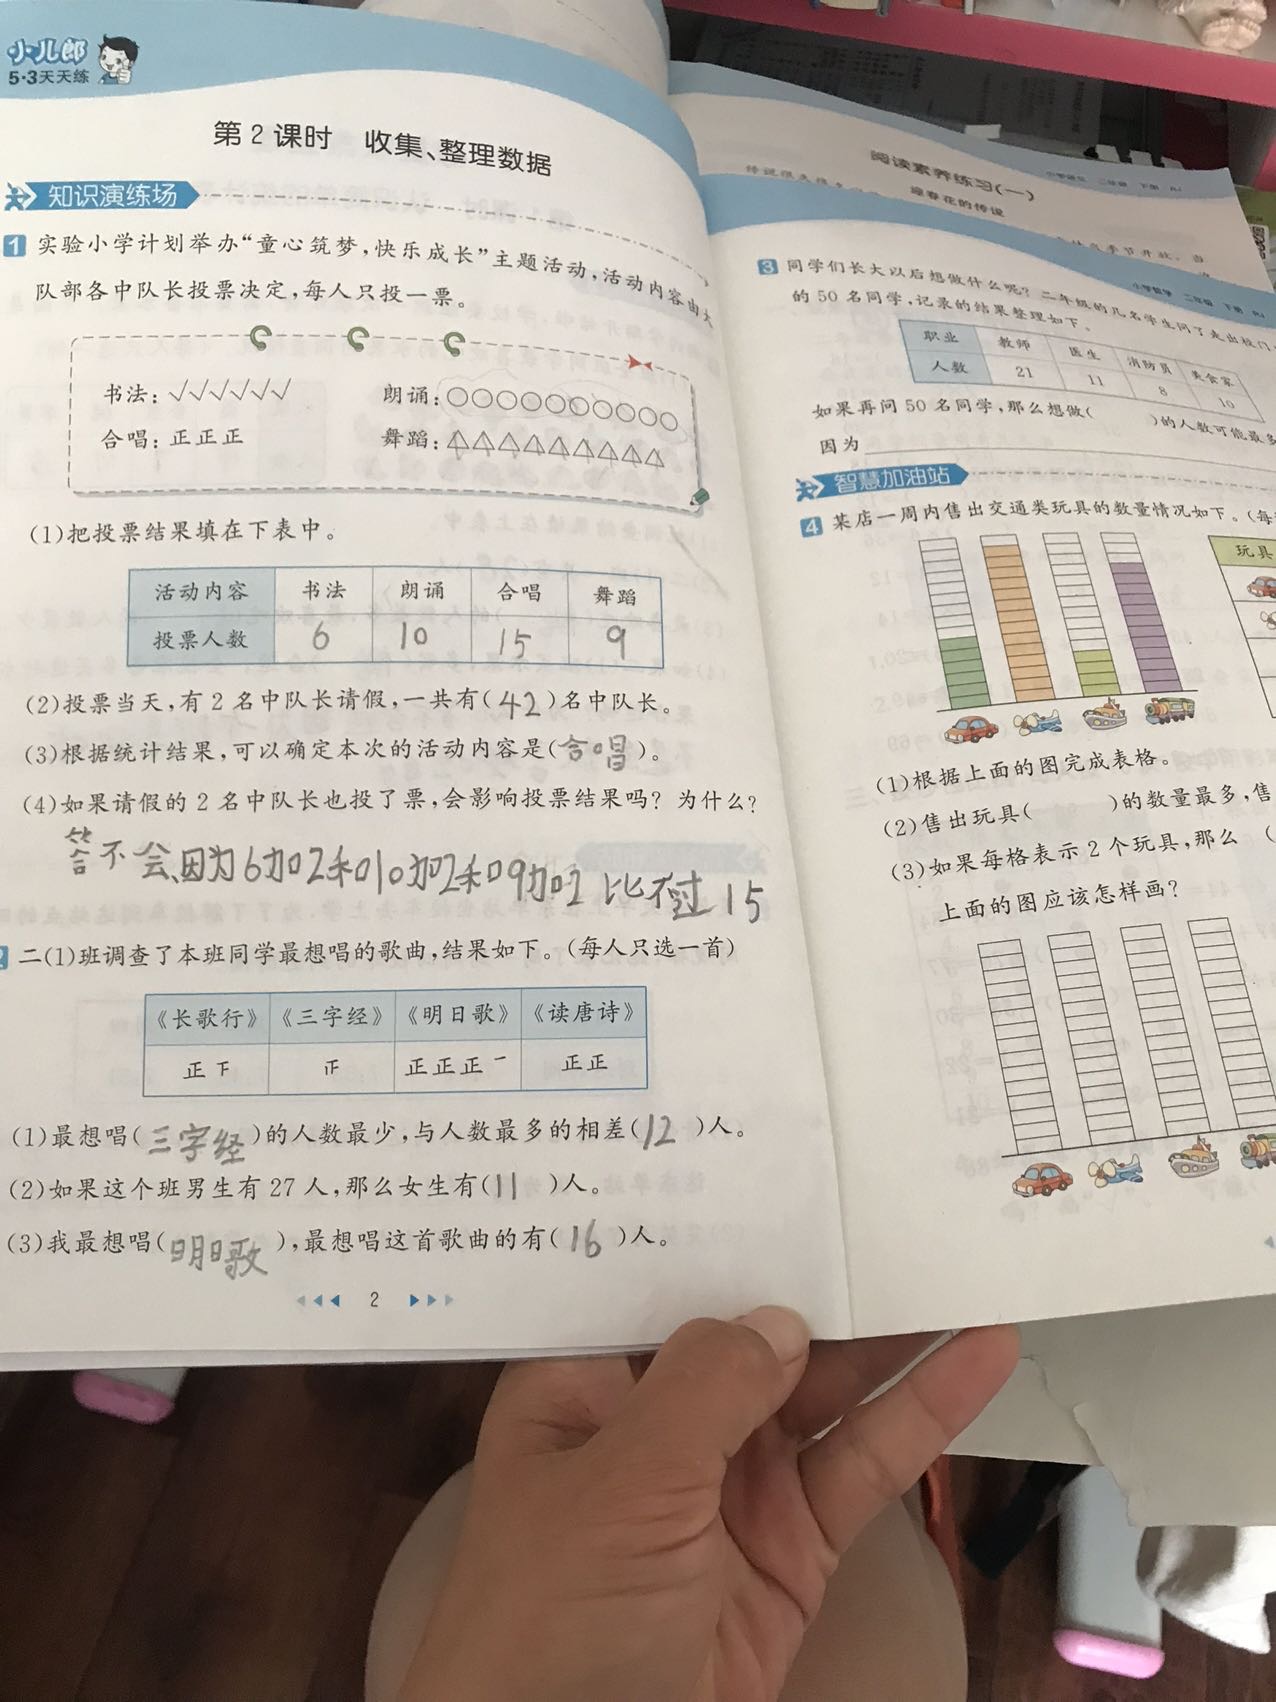 小儿郎
5·3天天练
第2课时 收集、整理数据
知识演练场
1 实验小学计划举办“童心筑梦,快乐成长”主题活动,活动内容由大
队部各中队长投票决定,每人只投一票。
书法:√√√√√√ 朗诵:○○○○○○○○○○
合唱:正正正 舞蹈:△△△△△△△△△
(1)把投票结果填在下表中。
活动内容 书法 朗诵 合唱 舞蹈
投票人数 6 10 15 9
(2)投票当天,有2名中队长请假,一共有(42)名中队长。
(3)根据统计结果,可以确定本次的活动内容是(合唱)。
(4)如果请假的2名中队长也投了票,会影响投票结果吗?为什么?
答不会,因为6加2和10加2和9加2比不过15
2 二(1)班调查了本班同学最想唱的歌曲,结果如下。(每人只选一首)
《长歌行》 《三字经》 《明日歌》 《读唐诗》
正 正正正一 正正
(1)最想唱(三字经)的人数最少,与人数最多的相差(12)人。
(2)如果这个班男生有27人,那么女生有(11)人。
(3)我最想唱(明日歌),最想唱这首歌曲的有(16)人。
2
阅读素养练习(一)
迎春花的传说
小学数学 二年级 下册 RJ
3 同学们长大以后想做什么呢?二年级的几名学生问了走出校门
的50名同学,记录的结果整理如下。
职业 教师 医生 消防员 美食家
人数 21 11 8 10
如果再问50名同学,那么想做( )的人数可能最多
因为
智慧加油站
4 某店一周内售出交通类玩具的数量情况如下。(每
玩具
(1)根据上面的图完成表格。
(2)售出玩具( )的数量最多,售
(3)如果每格表示2个玩具,那么(
上面的图应该怎样画?